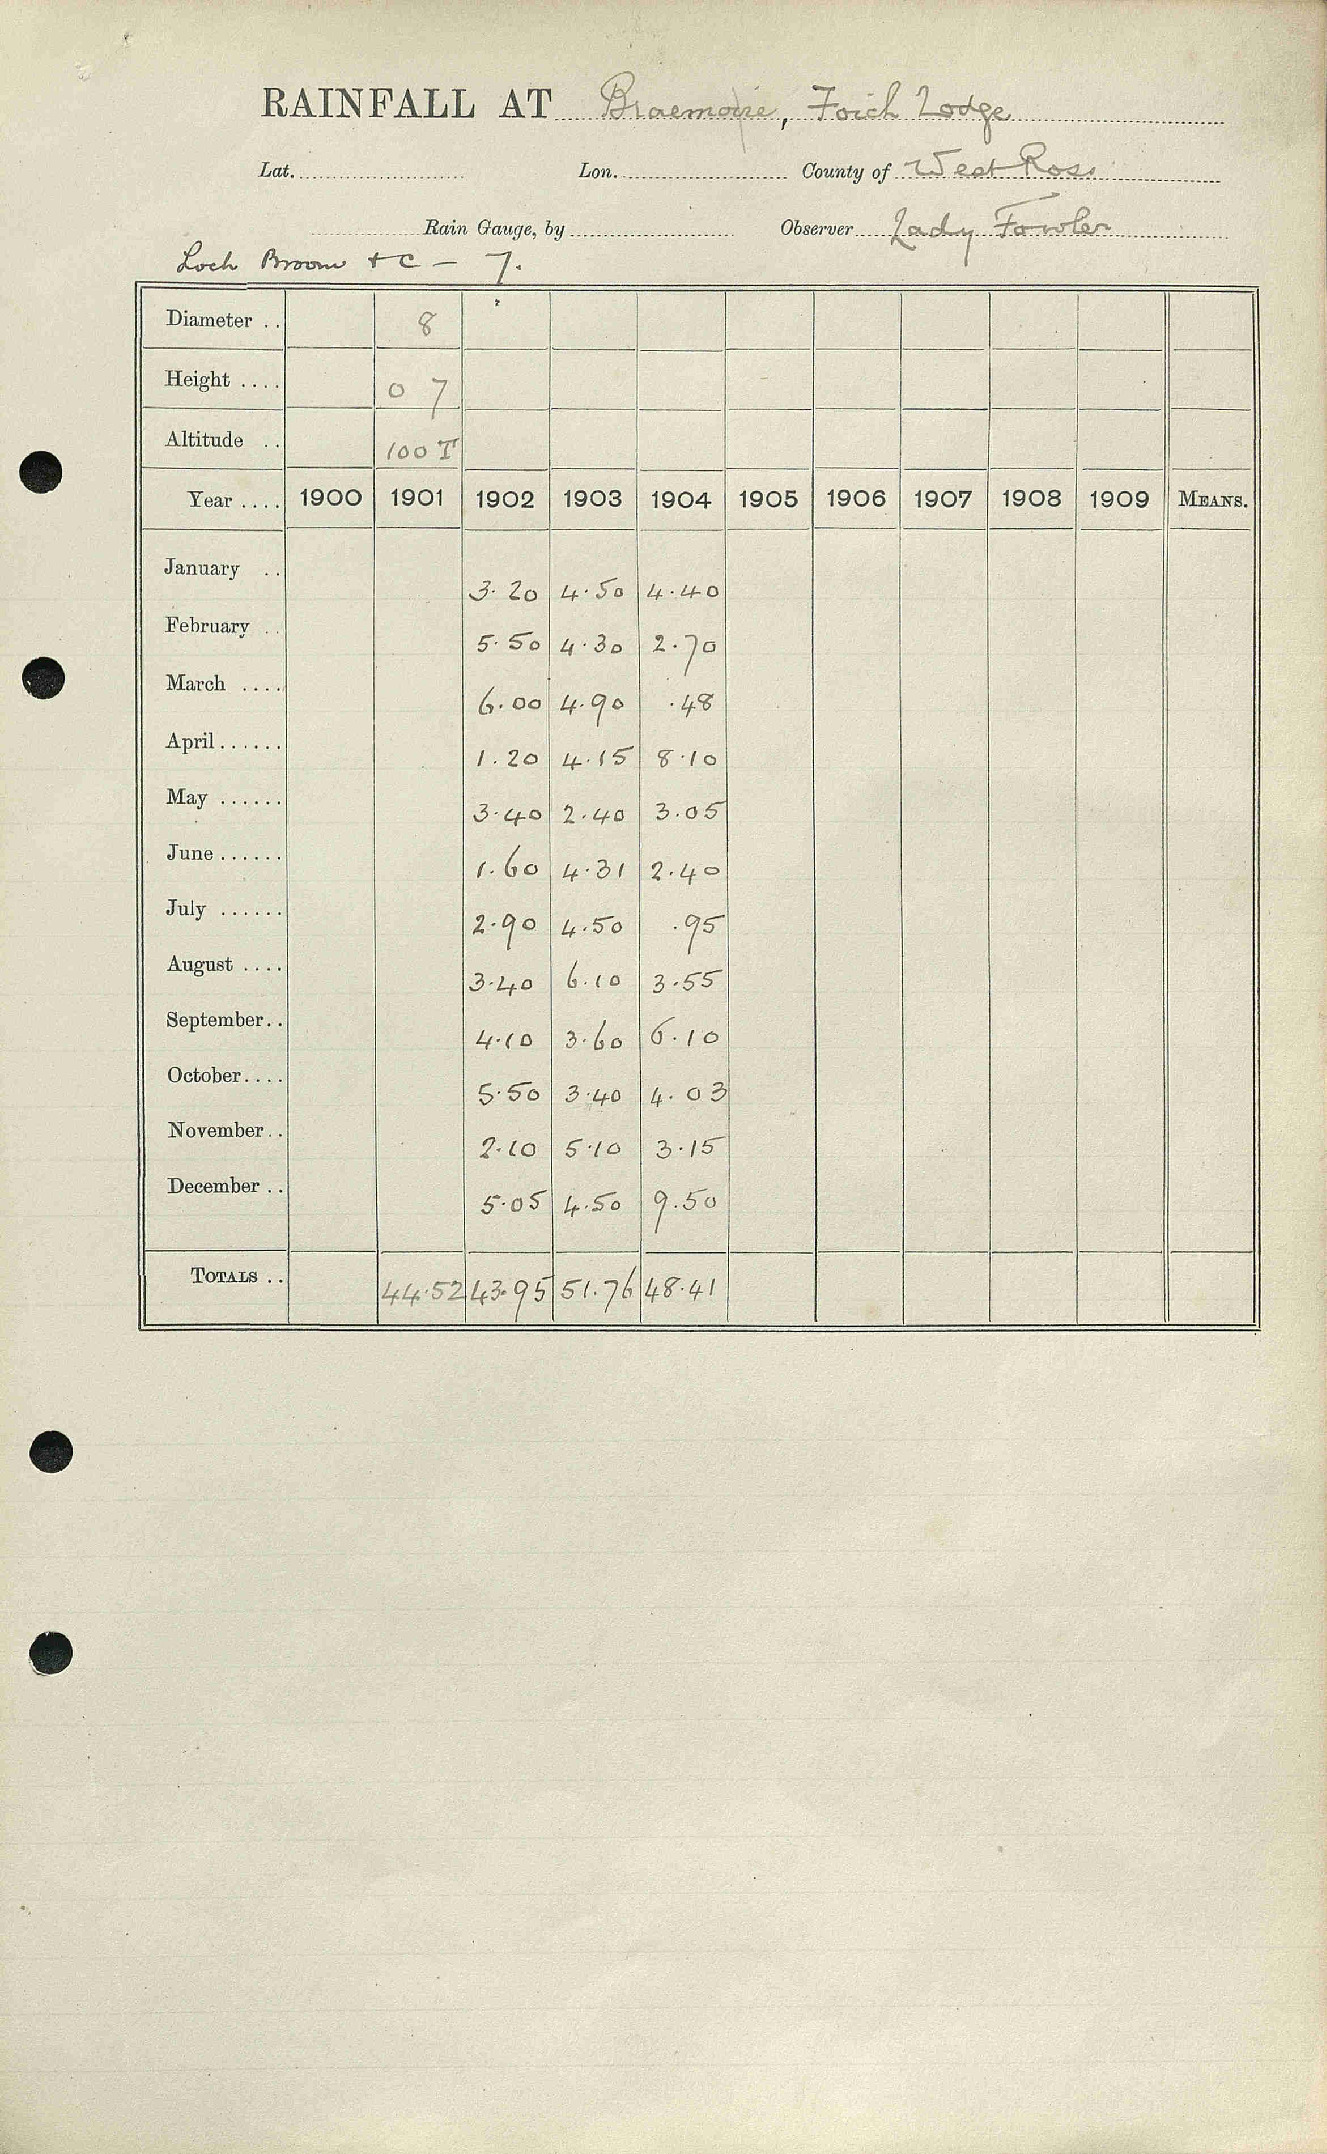 RAINFALL AT Braemore, Foich Lodge
Lat. Lon. County of West Ross
Rain Gauge, by Observer Lady Fowler
Loch Broom + C – 7.
Diameter .. 8
Height .... 0 7
Altitude .. 100 T
Year .... 1900 1901 1902 1903 1904 1905 1906 1907 1908 1909 MEANS.
January .. 3.20 4.50 4.40
February .. 5.50 4.30 2.70
March .... 6.00 4.90 .48
April...... 1.20 4.15 8.10
May ...... 3.40 2.40 3.05
June...... 1.60 4.31 2.40
July ...... 2.90 4.50 .95
August .... 3.40 6.10 3.55
September.. 4.10 3.60 6.10
October.... 5.50 3.40 4.03
November.. 2.10 5.10 3.15
December .. 5.05 4.50 9.50
TOTALS .. 44.52 43.95 51.76 48.41